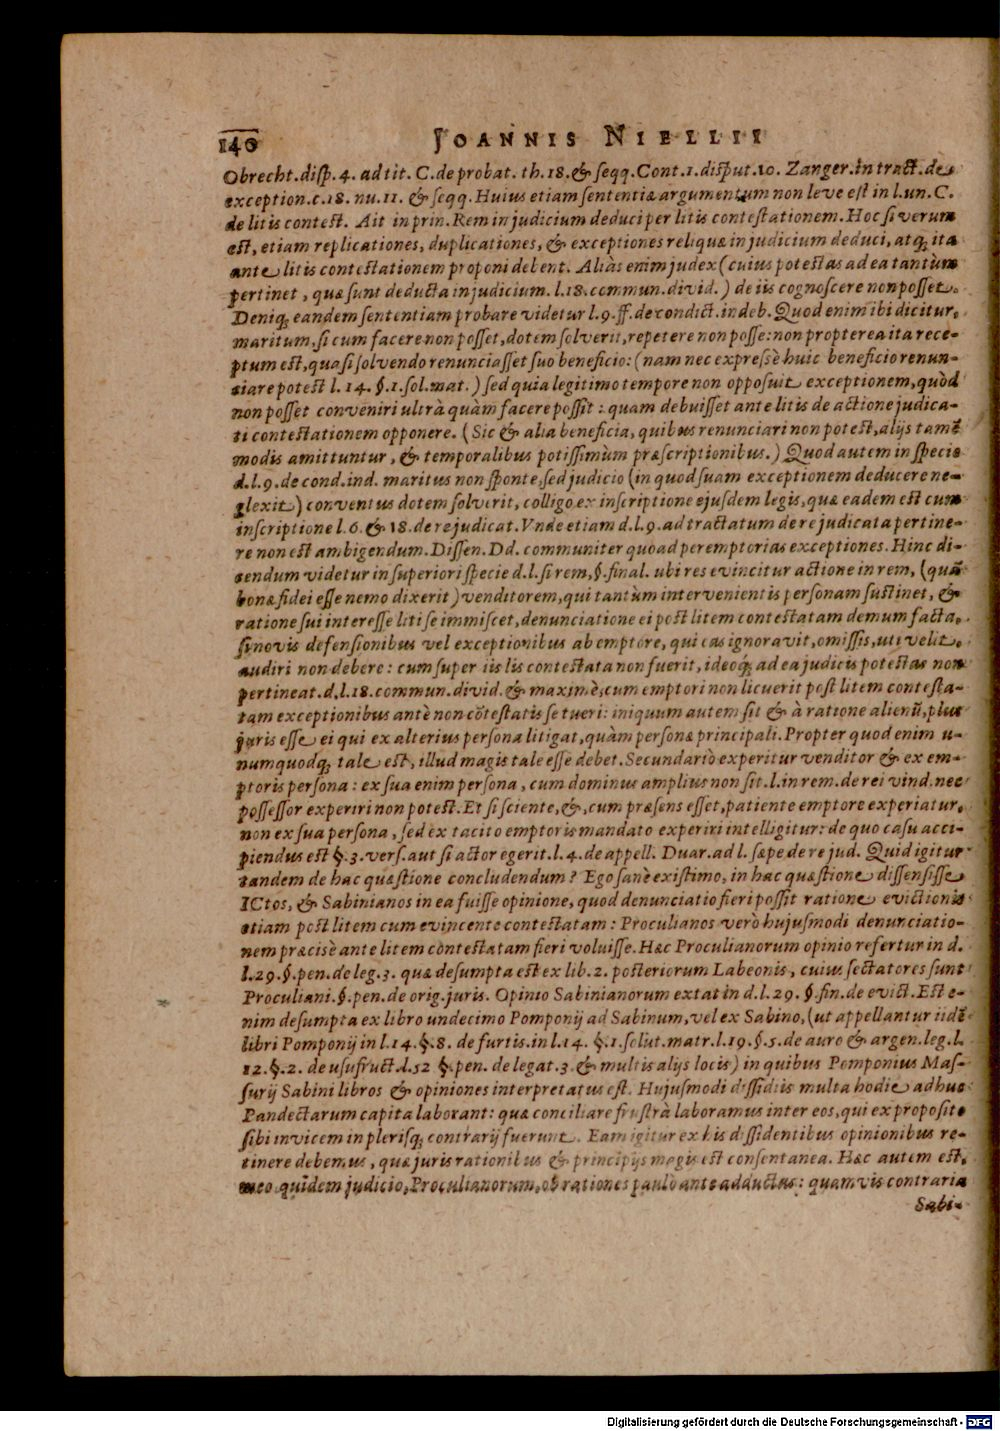 140 JOANNIS NIELLII
Obrecht. disp. 4. ad tit. C. de probat. th. 18. & seqq. Cont. 1. disput. 10. Zanger. in tract. de
exception. c. 18. nu. 11. & seqq. Huius etiam sententiæ argumentum non leve est in l. un. C.
de litis contest. Ait in prin. Rem in judicium deduci per litis contestationem. Hoc si verum
est, etiam replicationes, duplicationes, & exceptiones reliquæ in judicium deduci, atq; ita
ante litis contestationem proponi debent. Aliàs enim judex (cuius potestas ad ea tantùm
pertinet, quæ sunt deducta in judicium. l. 18. commun. divid.) de iis cognoscere non posset.
Deniq; eandem sententiam probare videtur l. 9. ff. de condict. indeb. Quod enim ibi dicitur,
maritum, si cum facere non posset, dotem solverit, repetere non posse: non propterea ita rece-
ptum est, quasi solvendo renunciasset suo beneficio: (nam nec expressè huic beneficio renun-
ciare potest l. 14. §. 1. sol. mat.) sed quia legitimo tempore non opposuit exceptionem, quòd
non posset conveniri ultrà quàm facere possit: quam debuisset ante litis de actione judica-
ti contestationem opponere. (Sic & alia beneficia, quibus renunciari non potest, alijs tamẽ
modis amittuntur, & temporalibus potissimùm præscriptionibus.) Quod autem in specie
d. l. 9. de cond. ind. maritus non sponte, sed judicio (in quod suam exceptionem deducere ne-
glexit) conventus dotem solverit, colligo ex inscriptione ejusdem legis, quæ eadem est cum
inscriptione l. 6. & 18. de re judicat. Vnde etiam d. l. 9. ad tractatum de re judicata pertine-
re non est ambigendum. Dissen. Dd. communiter quoad peremptorias exceptiones. Hinc di-
cendum videtur in superiori specie d. l. si rem, §. final. ubi res evincitur actione in rem, (quã
bonæ fidei esse nemo dixerit) venditorem, qui tantùm intervenientis personam sustinet, &
ratione sui interesse liti se immiscet, denunciatione ei post litem contestatam demum facta,
si novis defensionibus vel exceptionibus ab emptore, qui eas ignoravit, omissis, uti velit,
audiri non debere: cum super iis lis contestata non fuerit, ideoq; ad ea judicis potestas non
pertineat. d. l. 18. commun. divid. & maximè, cum emptori non licuerit post litem contesta-
tam exceptionibus antè non cõtestatis se tueri: iniquum autem sit & à ratione alienũ, plus
juris esse ei qui ex alterius persona litigat, quàm personæ principali. Propter quod enim u-
numquodq; tale est, illud magis tale esse debet. Secundariò experitur venditor & ex em-
ptoris persona: ex sua enim persona, cum dominus amplius non sit. l. in rem. de rei vind. nec
possessor experiri non potest. Et si sciente, &, cum præsens esset, patiente emptore experiatur,
non ex sua persona, sed ex tacito emptoris mandato experiri intelligitur: de quo casu acci-
piendus est §. 3. vers. aut si actor egerit. l. 4. de appell. Duar. ad l. sæpe de re jud. Quid igitur
tandem de hac quæstione concludendum? Ego sanè existimo, in hac quæstione dissensisse
ICtos, & Sabinianos in ea fuisse opinione, quod denunciatio fieri possit ratione evictionis
etiam post litem cum evincente contestatam: Proculianos verò hujusmodi denunciatio-
nem præcisè ante litem contestatam fieri voluisse. Hæc Proculianorum opinio refertur in d.
l. 29. §. pen. de leg. 3. quæ desumpta est ex lib. 2. posteriorum Labeonis, cuius sectatores sunt
Proculiani. §. pen. de orig. juris. Opinio Sabinianorum extat in d. l. 29. §. fin. de evict. Est e-
nim desumpta ex libro undecimo Pomponij ad Sabinum, vel ex Sabino, (ut appellantur iidẽ
libri Pomponij in l. 14. §. 8. de furtis. in l. 14. §. 1. solut. matr. l. 19. §. 5. de auro & argen. leg. l.
12. §. 2. de usufruct. d. 52 §. pen. de legat. 3. & multis alijs locis) in quibus Pomponius Mas-
surij Sabini libros & opiniones interpretatus est. Hujusmodi dissidiis multa hodie adhuc
Pandectarum capita laborant: quæ conciliare frustrà laboramus inter eos, qui ex proposito
sibi invicem in plerisq; contrarij fuerunt. Eam igitur ex his dissidentibus opinionibus re-
tinere debemus, quæ juris rationibus & principijs magis est consentanea. Hæc autem est,
meo quidem judicio, Proculianorum, ob rationes paulò antè adductas: quamvis contraria
Sabi-
Digitalisierung gefördert durch die Deutsche Forschungsgemeinschaft - DFG